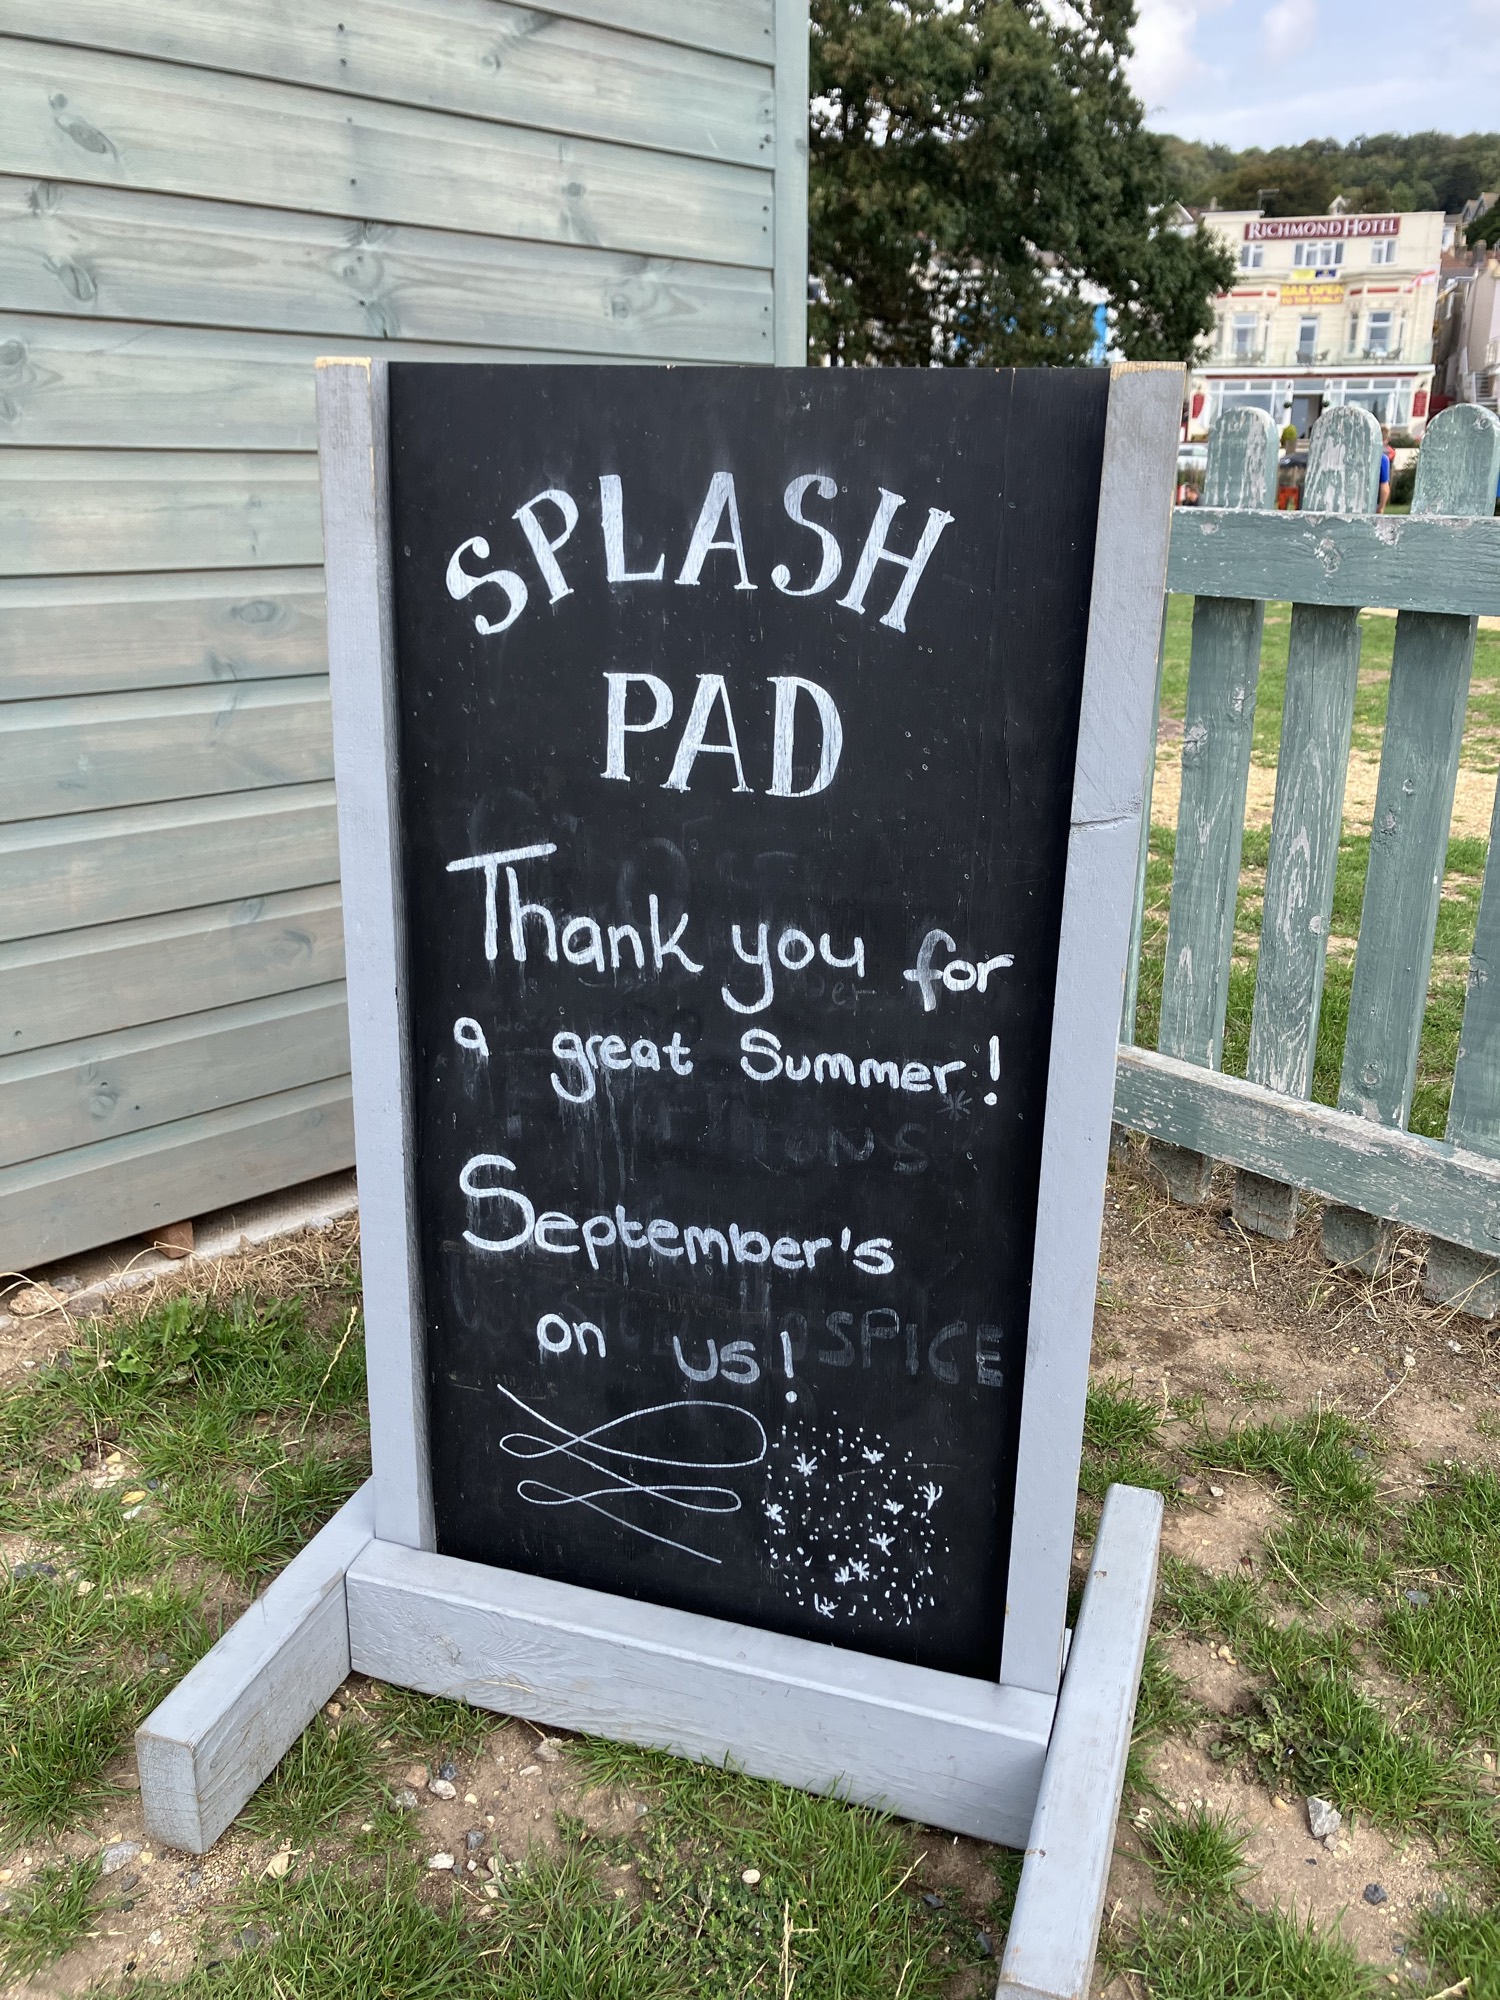 RICHMOND HOTEL
BAR OPEN
TO THE PUBLIC
SPLASH
PAD
Thank you for
a great Summer!
September's
on us!
HOSPICE